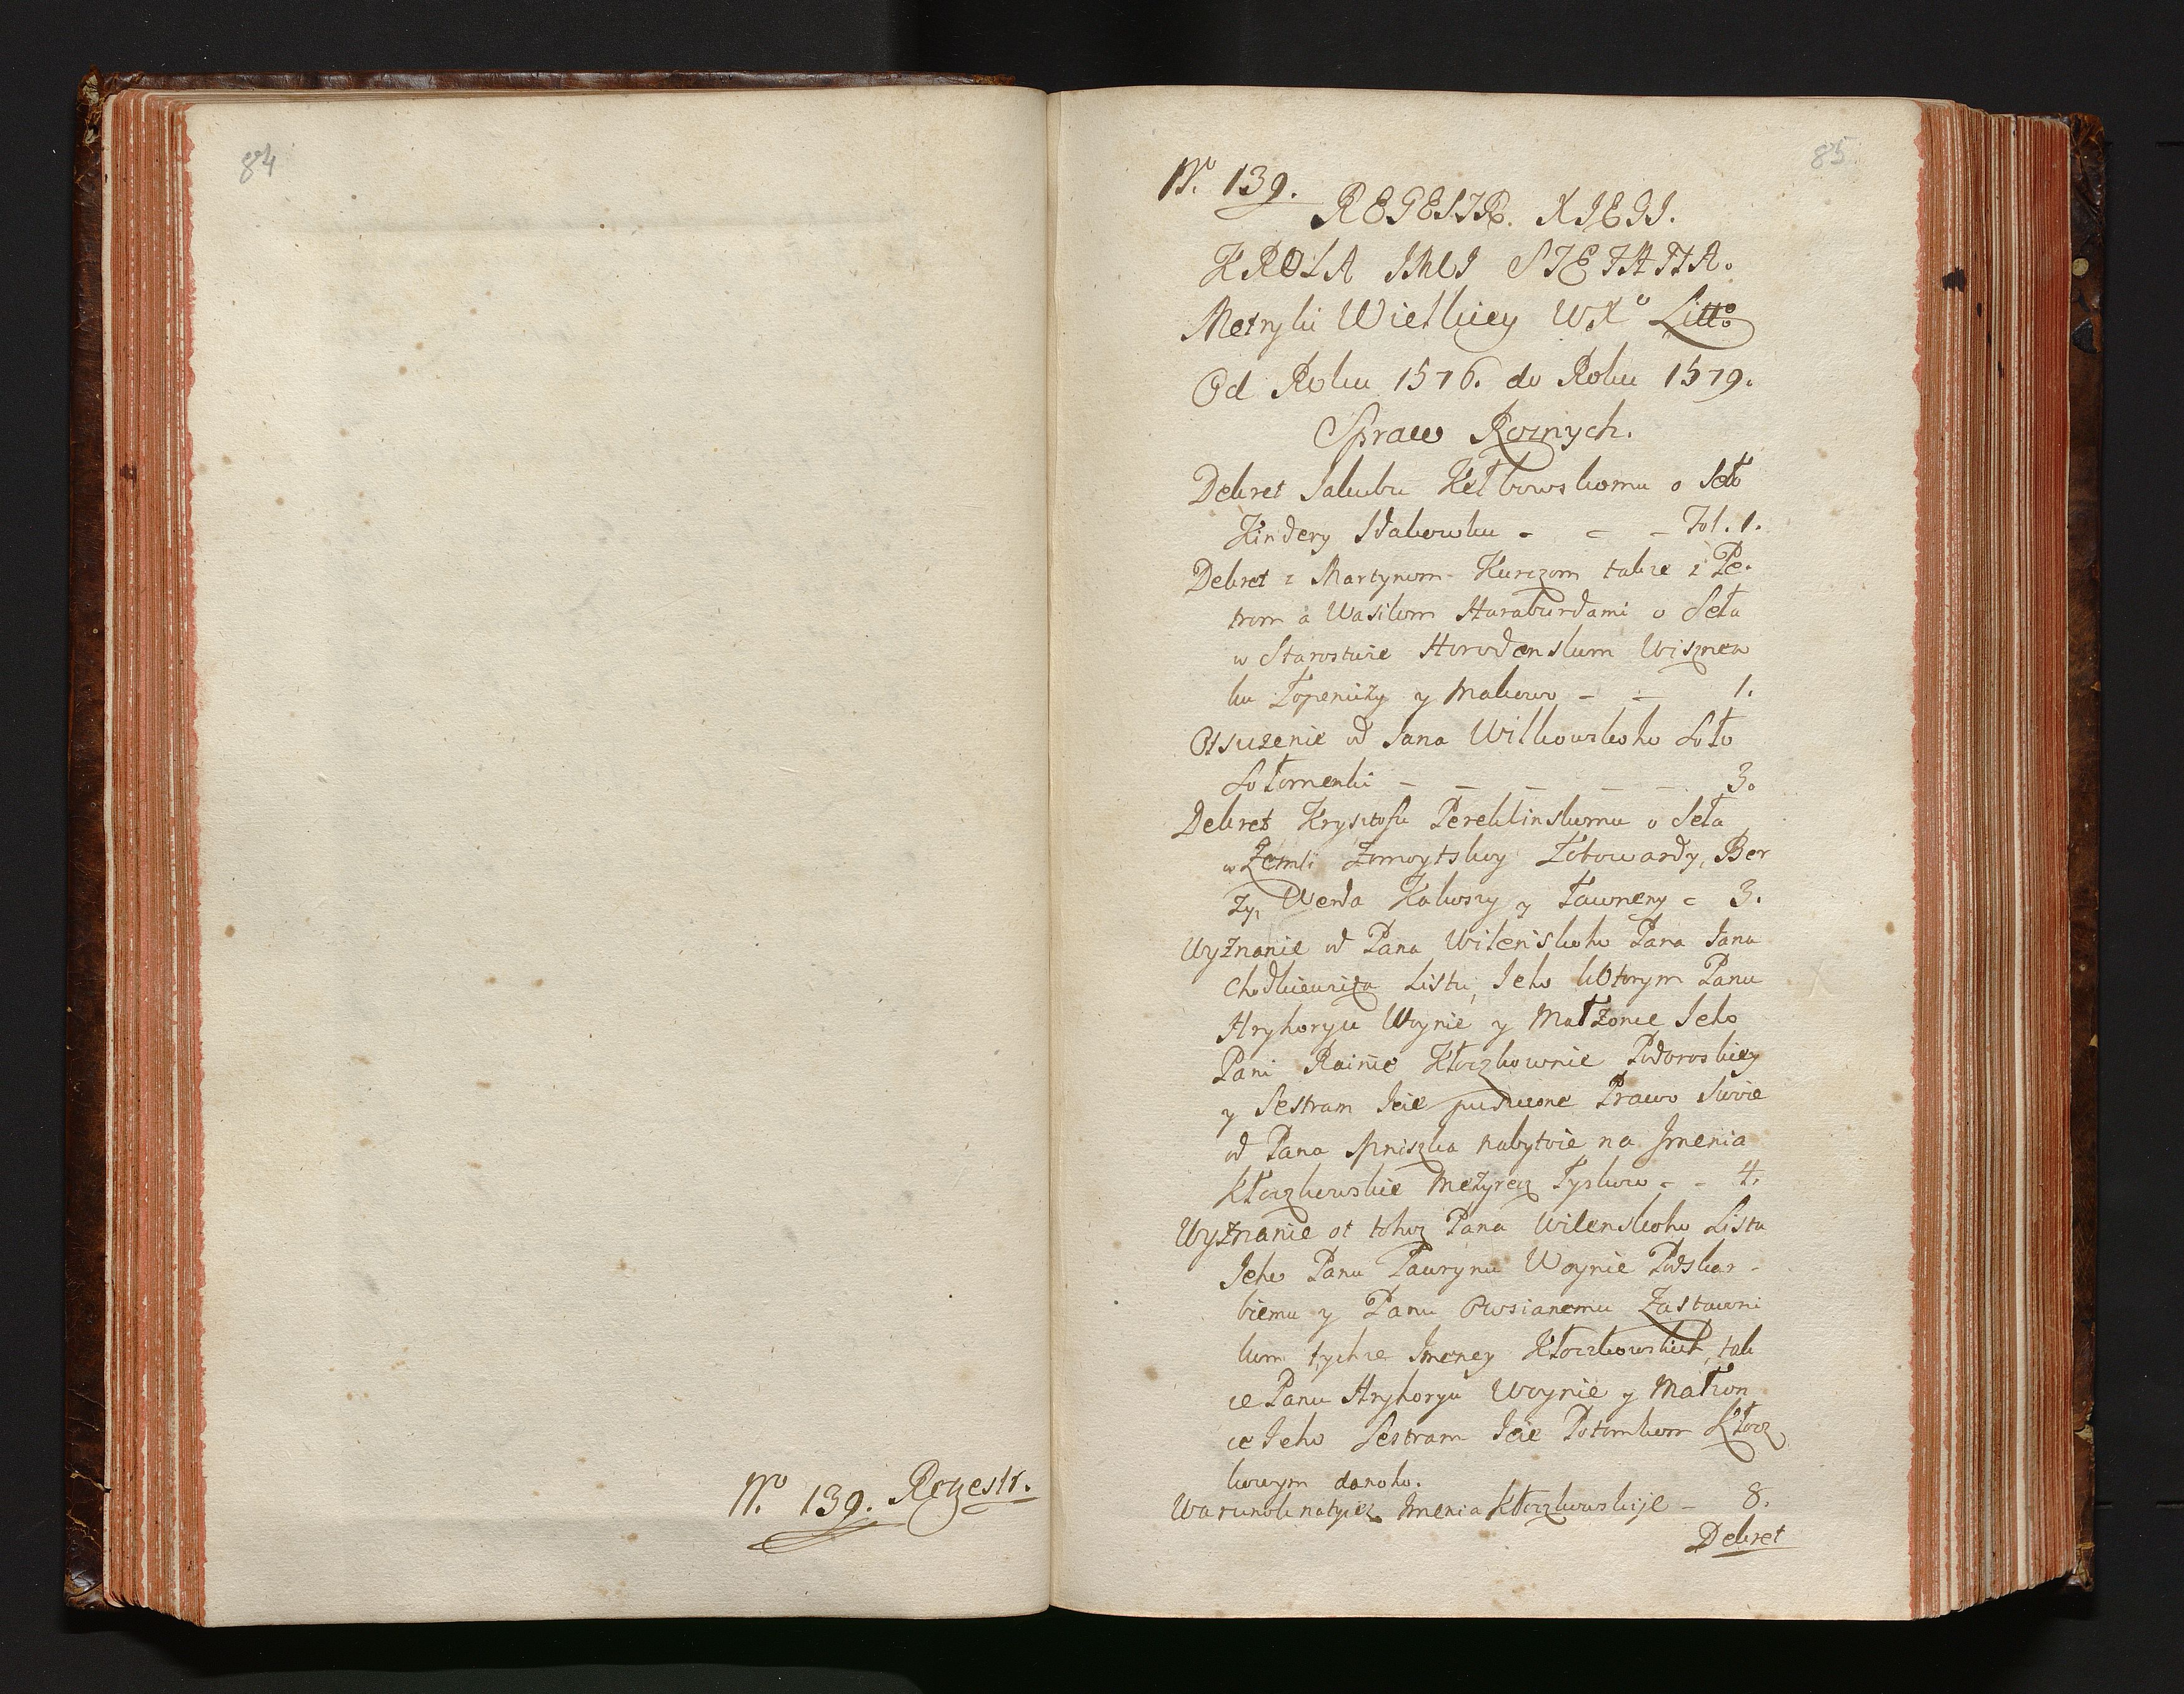 84
Nº 139. Regestr.
85
Nº 139.
REGESTR. XIEGI.
KROLA JMCI STEFANA.
Metryki Wielkiey W. Xº Littº
Od Roku 1576. do Roku 1579.
Spraw Roznych.
Dekret Jakubu Kełbowskomu o Seło
Kindery - - - Fol. 1.
Dekret z Martynom Kurczom takze z Pe-
trom a Wasilom Haraburdami o Seła
w Starostwie Horodenskum Wisznew
ku Łopenizy y Makowo - - 1.
Otsuzenie od Jana Wilkowskoho Soło
Sołomenki - - - - - 3.
Dekret Krysztofu Pereklinskomu o Seła
w Zemli Zomoytskoy Łotowardy, Ber
zy, Werda Kakoszy y Ławneny - 3.
Wyznanie od Pana Wilenskoho Pana Jana
Chodkiewicza Listu, Jeho kotorym Panu
Hryhoryu Woynie y Małżonce Jeho
Pani Rainie Kłoczkownie Podoroskiey
y Sestram Jeie puszczone Prawo Swoie
od Pana nabytoie na Jmenia
Kłoczkowskie Meżyrecz Tyskow - - 4.
Wyznanie ot tohoz Pana Wilenskoho Lista
Jeho Panu Ławrynu Woynie Podskar-
biemu y Panu Owsianemu Zastawni
kom tychze Jmeney Kłoczkowskich, tak
ze Panu Hryhoryu Woynie y Małzon
ce Jeho Sestram Jeie Potomkom Kłocz
kowym danoho.
Warunok natyiez Jmenia Kłoczkowskije - 8.
Dekret